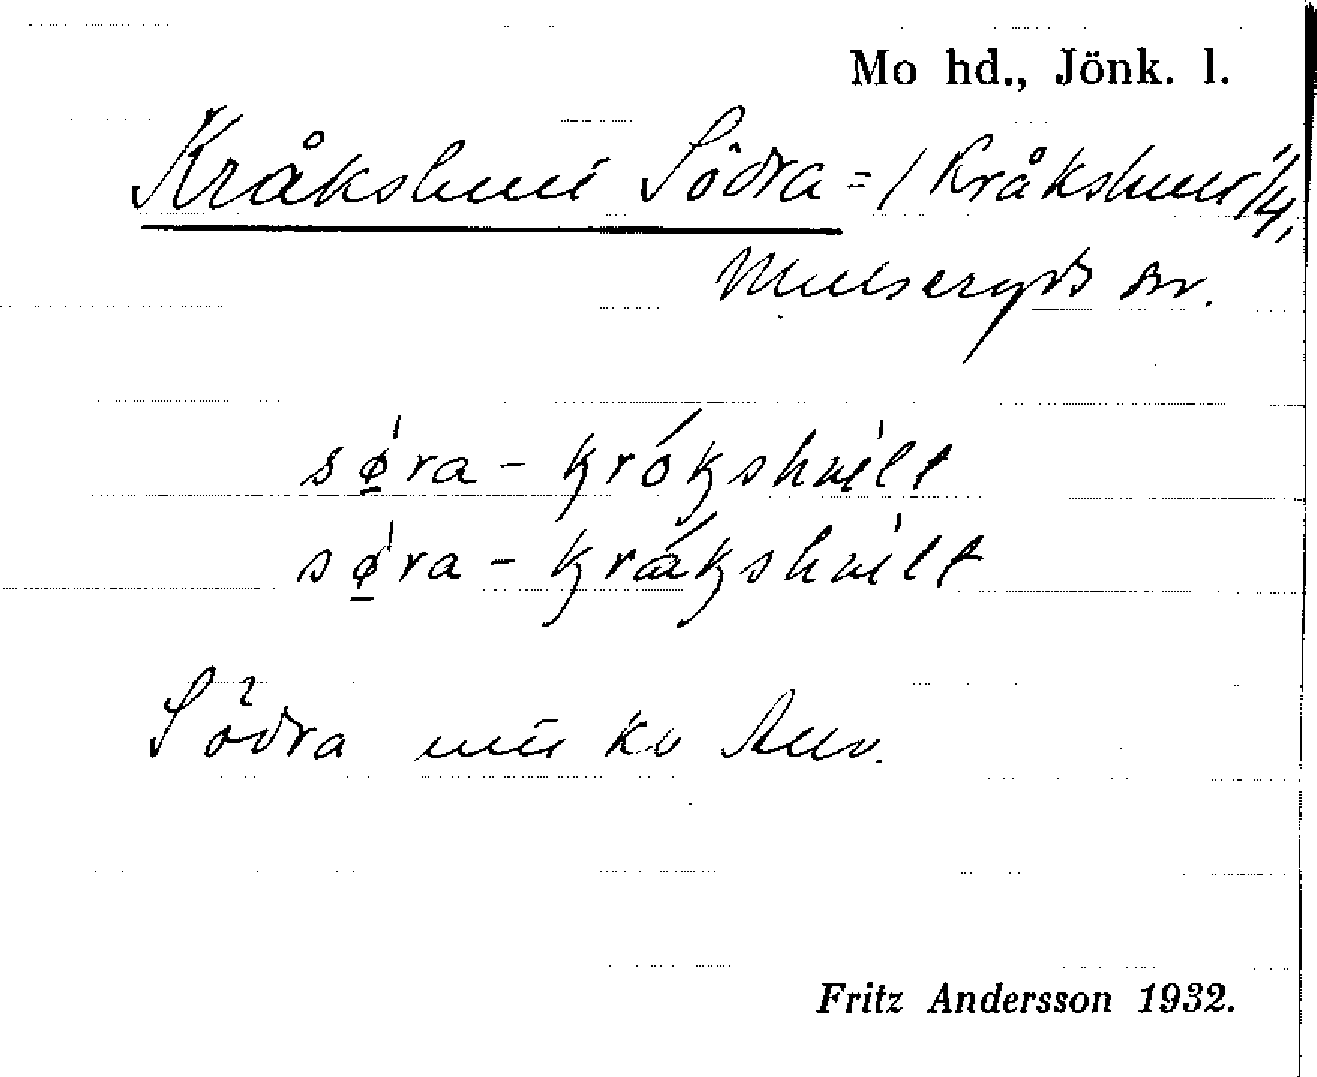 Mo hd., Jönk. l.
Kråkshult Södra = / Kråkshult 1/4,
Mulseryds sn.
sø̱ra - krókshult
sø̱ra - kråkshult
Södra
Fritz Andersson 1932.